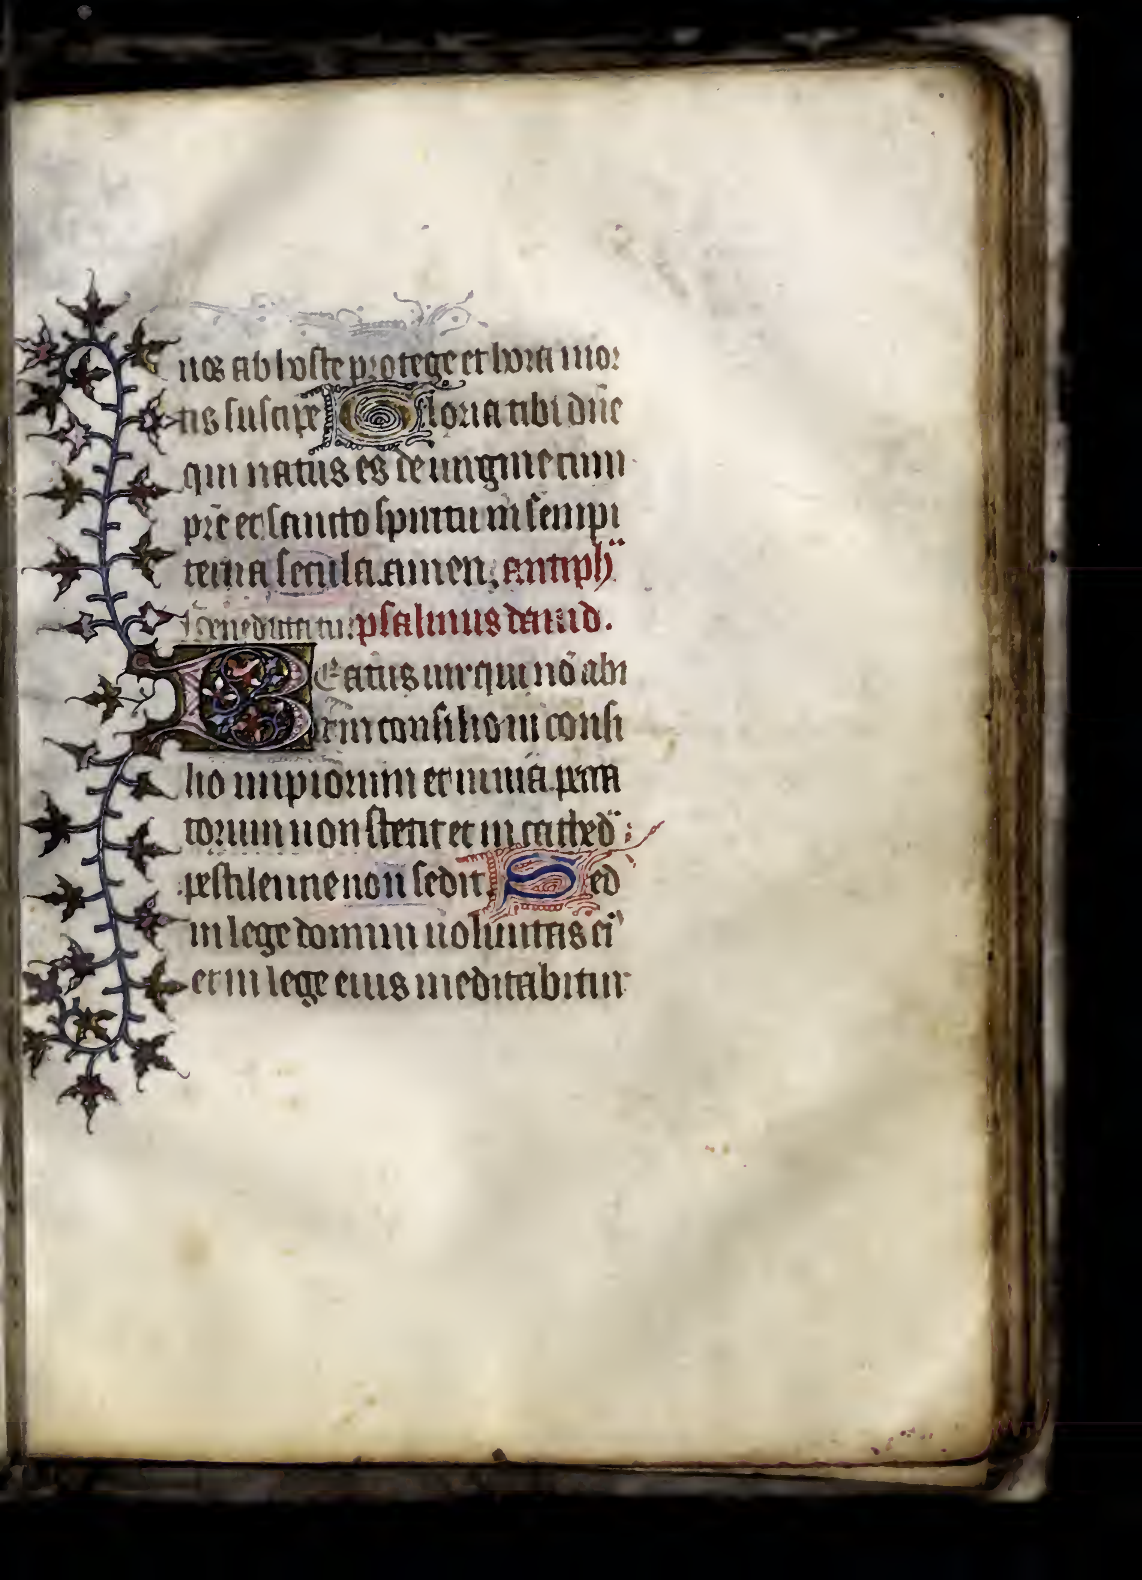 nos ab hoste protege et hora mor
tis suscipe Gloria tibi dn̄e
qui natus es de uirgine cum
pr̄e et sancto spiritu in sempi
terna secula. amen. antiph᷑
Benedicta tu. psalmus dauid.
Beatus uir qui nō abi
it in consilio in consi
lio impiorum et in uia pecca
torum non stetit et in cathed᷑
pestilencie non sedit. Sed
in lege domini uoluntas ei᷒
et in lege eius meditabitur